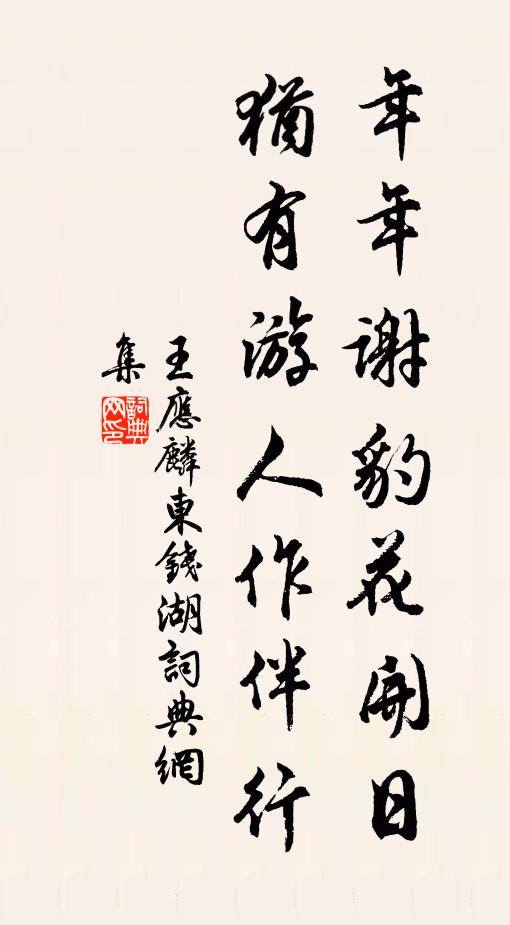 年年谢豹花開日
猶有游人作伴行
王應麟東錢湖詞典網
集
詞典網印